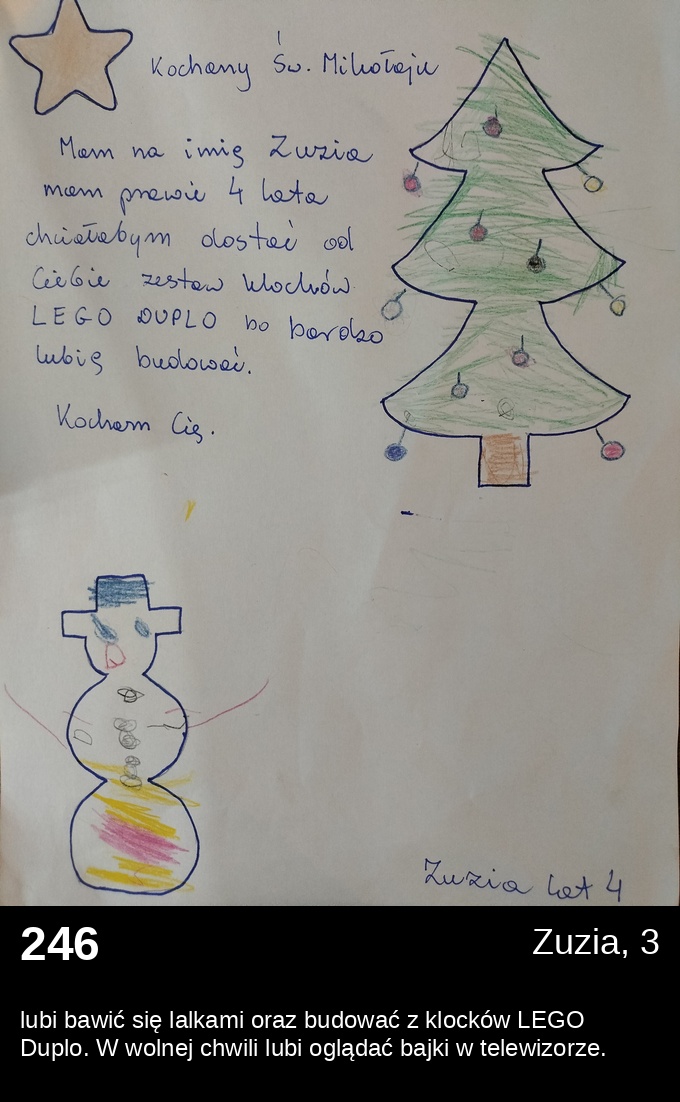 Kochany Św. Mikołaju
Mam na imię Zuzia
mam prawie 4 lata
chciałabym dostać od
Ciebie zestaw klocków
LEGO DUPLO bo bardzo
lubię budować.
Kocham Cię.
Zuzia lat 4
246
Zuzia, 3
lubi bawić się lalkami oraz budować z klocków LEGO
Duplo. W wolnej chwili lubi oglądać bajki w telewizorze.